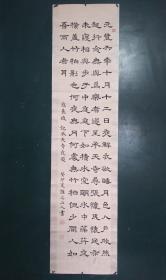 元豐六年十月十二日夜解衣欲睡月色入戶欣然
起行念無與為樂者遂至承天寺尋張懷民懷民亦
未寢相與步于中庭庭下如積水空明水中藻荇交
橫蓋竹柏影也何夜無月何處無竹柏但少閑人如
吾兩人者耳
記承天寺夜遊
書